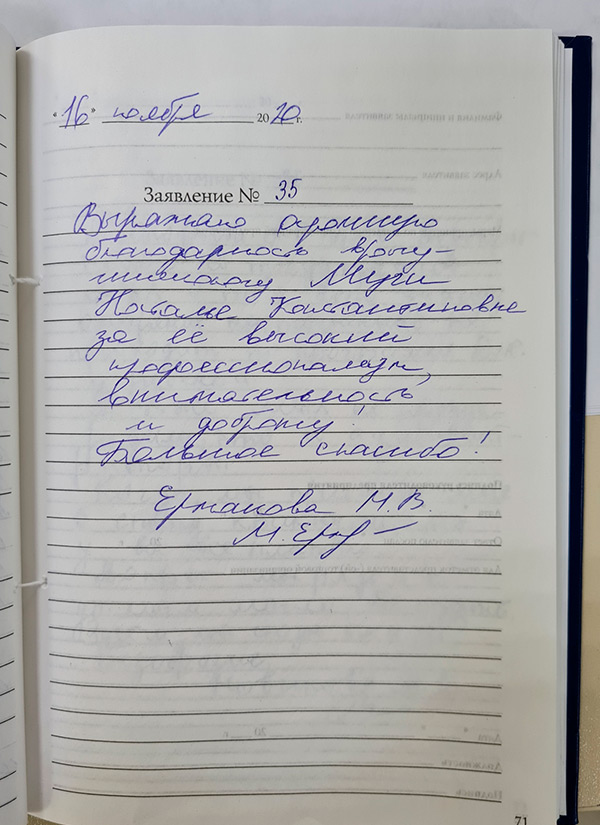 "16" ноября 2020 г.
Заявление № 35
Выражаю огромную
благодарность врачу-
гинекологу
Наталье Константиновне
за её высокий
профессионализм,
внимательность
и доброту!
Большое спасибо!
Ермакова М.В.
71